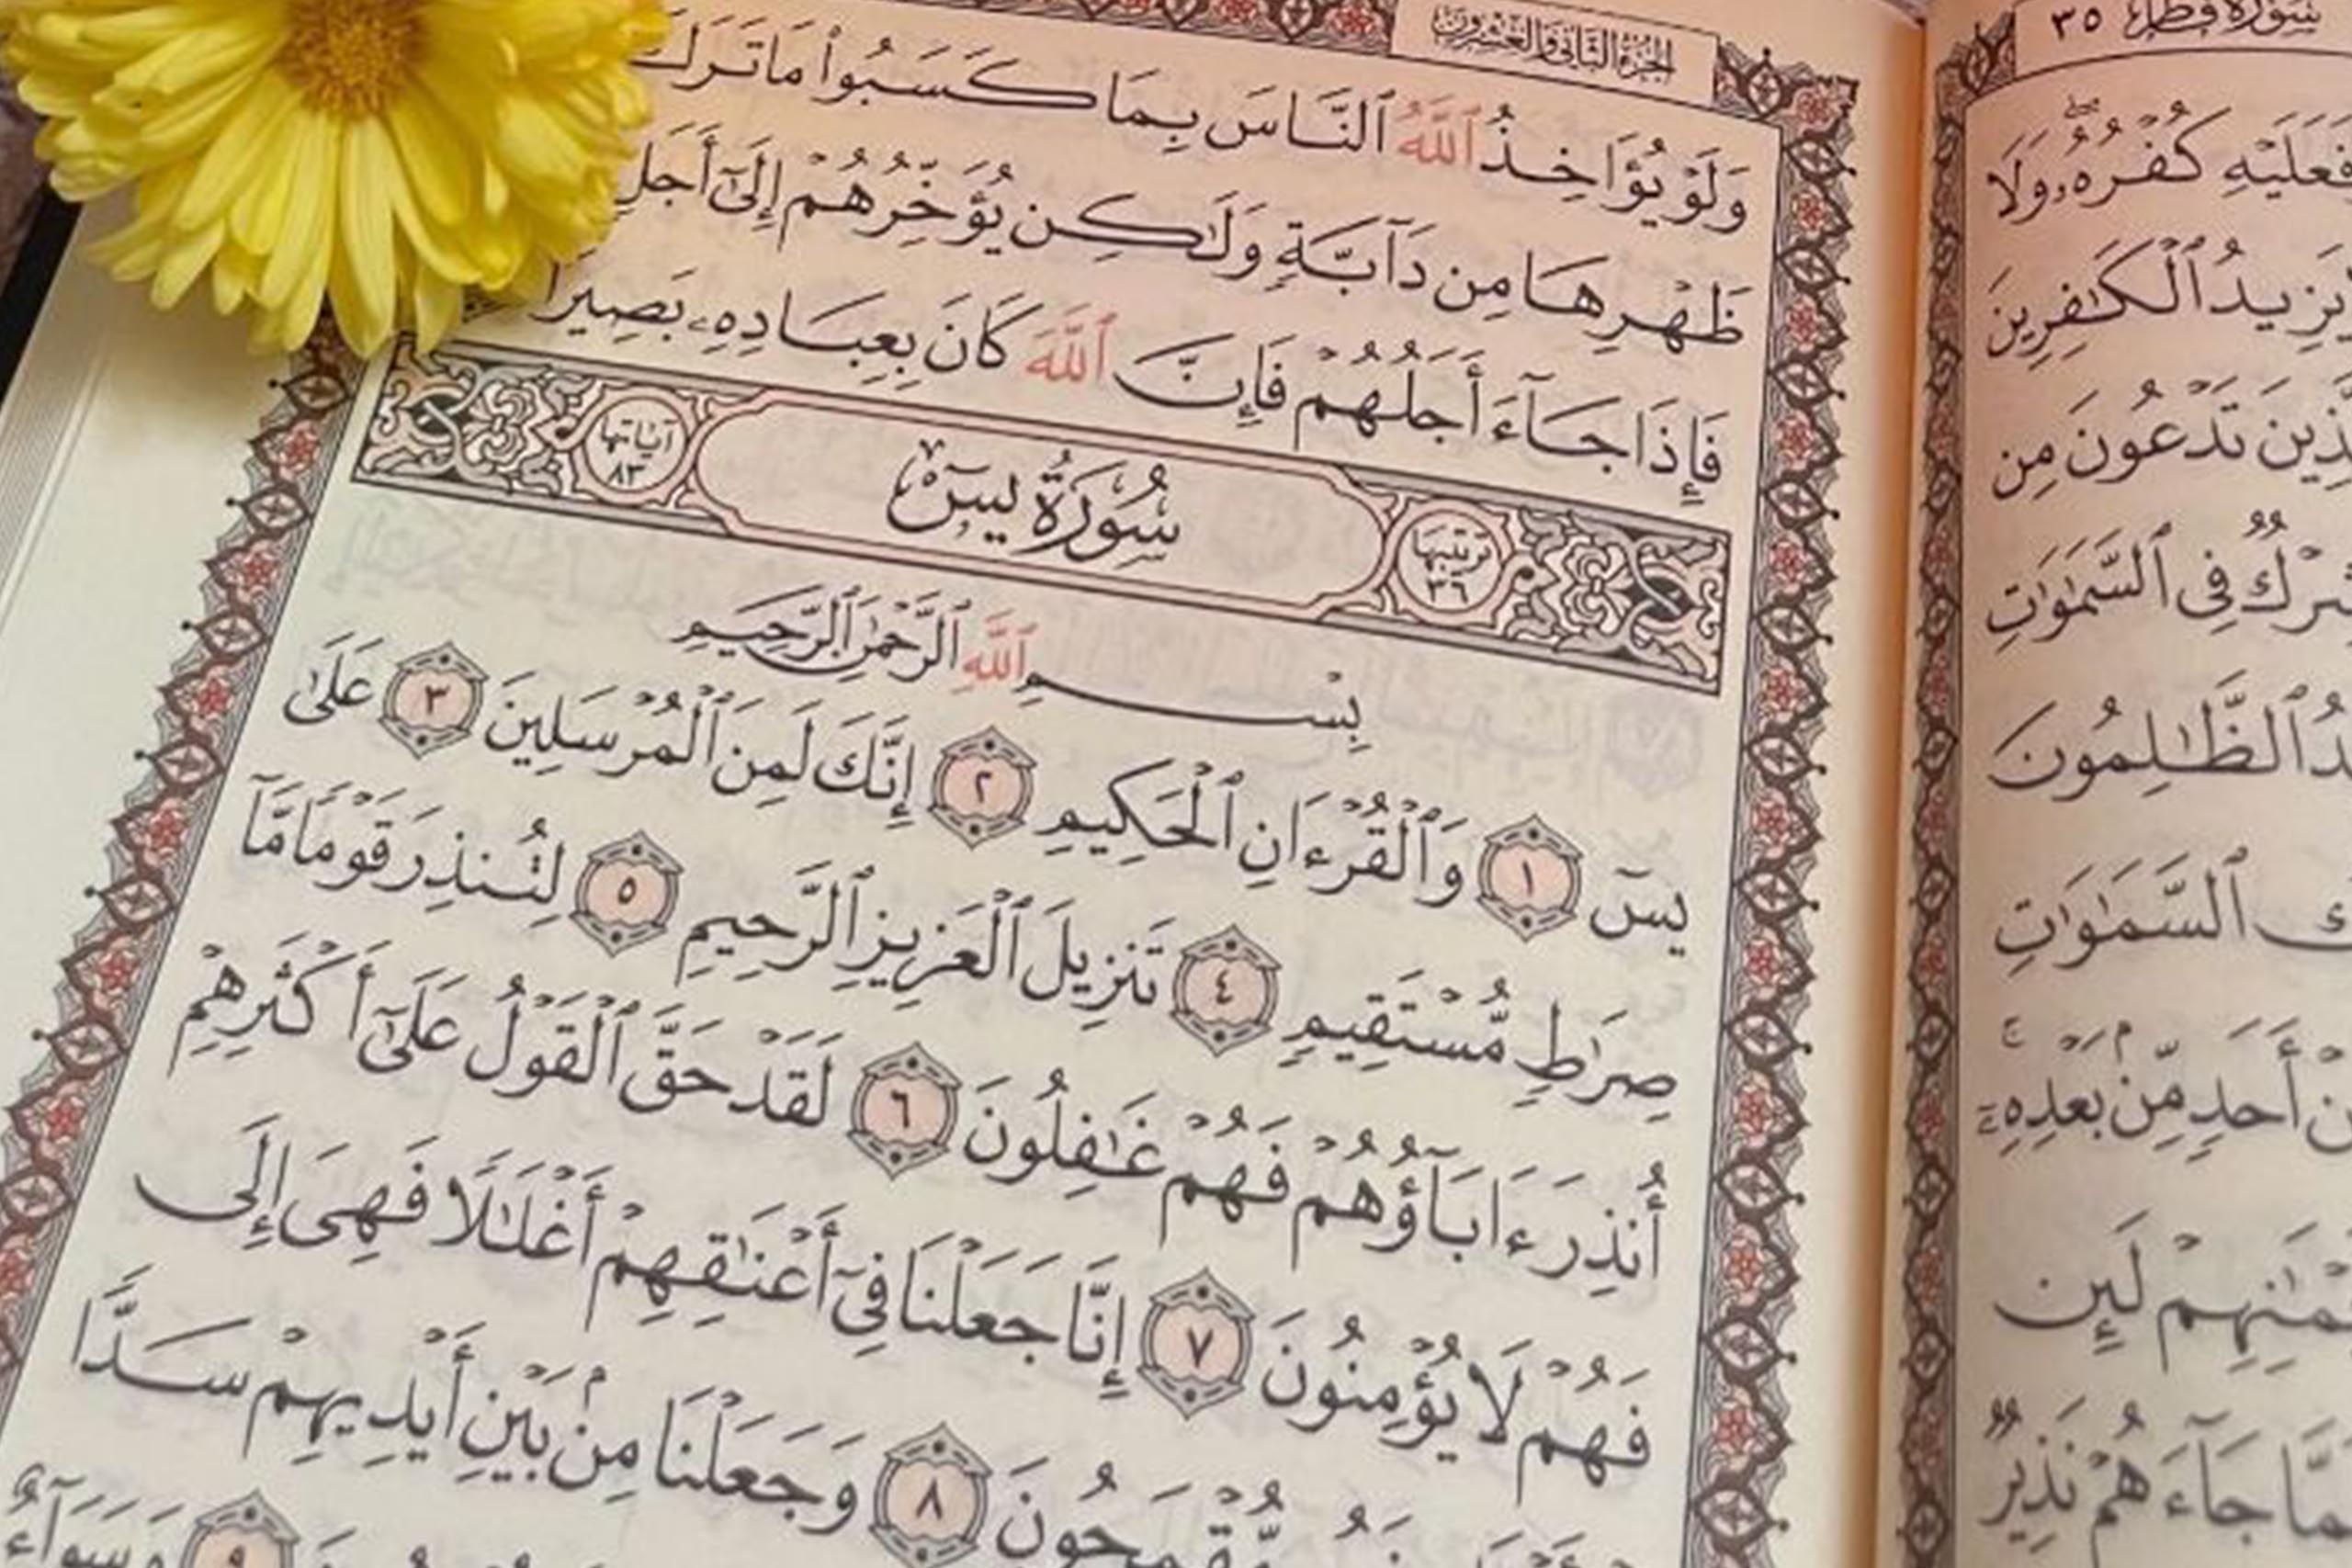 الجزء الثاني والعشرون
وَلَوْ يُؤَاخِذُ ٱللَّهُ ٱلنَّاسَ بِمَا كَسَبُوا۟ مَا تَرَكَ
ظَهْرِهَا مِن دَآبَّةٍ وَلَٰكِن يُؤَخِّرُهُمْ إِلَىٰٓ أَجَلٍ
فَإِذَا جَآءَ أَجَلُهُمْ فَإِنَّ ٱللَّهَ كَانَ بِعِبَادِهِۦ بَصِيرًا
ترتيبها ٣٦ سُورَةُ يسٓ آياتها ٨٣
بِسْمِ ٱللَّهِ ٱلرَّحْمَٰنِ ٱلرَّحِيمِ
يسٓ ١ وَٱلْقُرْءَانِ ٱلْحَكِيمِ ٢ إِنَّكَ لَمِنَ ٱلْمُرْسَلِينَ ٣ عَلَىٰ
صِرَٰطٍ مُّسْتَقِيمٍ ٤ تَنزِيلَ ٱلْعَزِيزِ ٱلرَّحِيمِ ٥ لِتُنذِرَ قَوْمًا مَّآ
أُنذِرَ ءَابَآؤُهُمْ فَهُمْ غَٰفِلُونَ ٦ لَقَدْ حَقَّ ٱلْقَوْلُ عَلَىٰٓ أَكْثَرِهِمْ
فَهُمْ لَا يُؤْمِنُونَ ٧ إِنَّا جَعَلْنَا فِىٓ أَعْنَٰقِهِمْ أَغْلَٰلًا فَهِىَ إِلَى
مُّقْمَحُونَ ٨ وَجَعَلْنَا مِنۢ بَيْنِ أَيْدِيهِمْ سَدًّا
٩ وَسَوَآءٌ
سورة فطاء ٣٥
فَعَلَيْهِ كُفْرُهُۥ وَلَا
يَزِيدُ ٱلْكَٰفِرِينَ
تَدْعُونَ مِن
شِرْكٌ فِى ٱلسَّمَٰوَٰتِ
ٱلظَّٰلِمُونَ
ٱلسَّمَٰوَٰتِ
أَحَدٍ مِّنۢ بَعْدِهِۦٓ
لَئِن
جَآءَهُمْ نَذِيرٌ